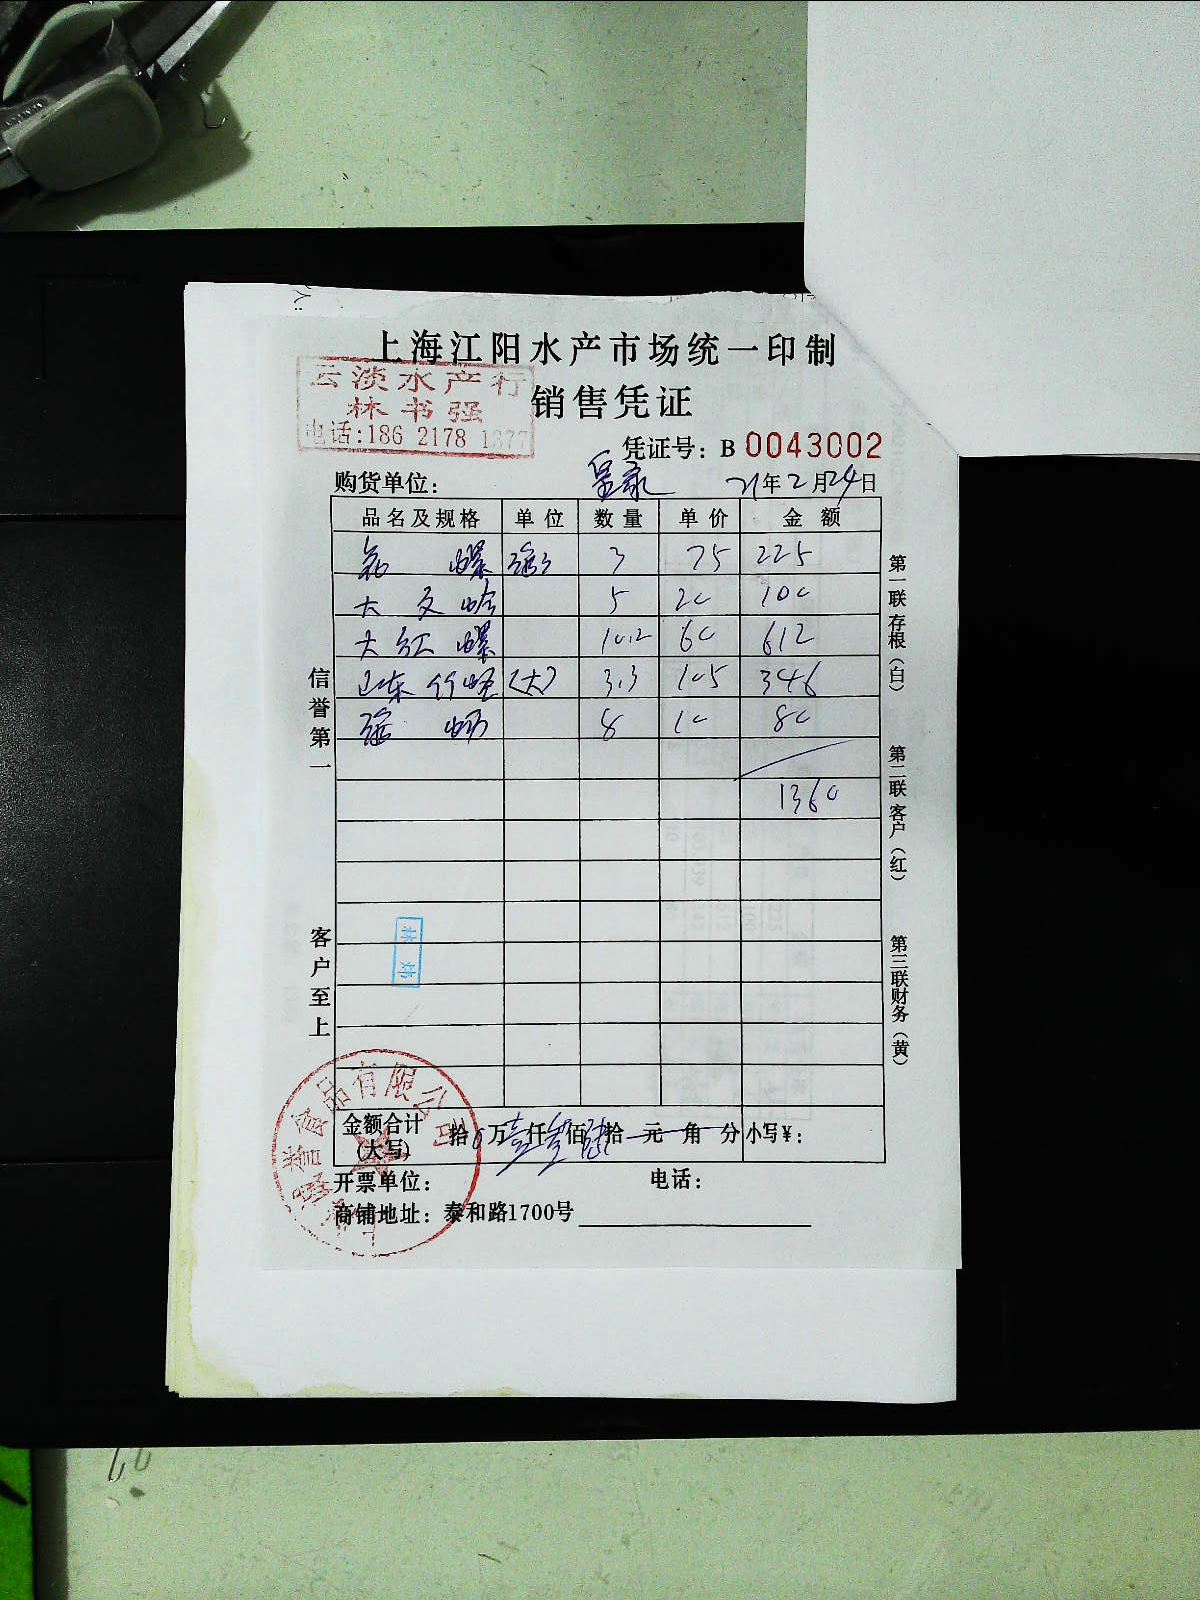 上海江阳水产市场统一印制
云淡水产行
林书强
电话:186 2178 1377
销售凭证
凭证号: B 0043002
购货单位: 21年2月24日
品名及规格 单位 数量 单价 金额
螺 3 75 225
大文蛤 5 20 100
大红螺 10.2 60 612
山东竹蛏 (大) 3.3 105 346
8 10 80
1360
信誉第一
客户至上
第一联存根(白)
第二联客户(红)
第三联财务(黄)
林炜
金额合计(大写) 拾0万壹仟叁佰陆拾元角分 小写¥:
食品有限公司
开票单位: 电话:
商铺地址: 泰和路1700号